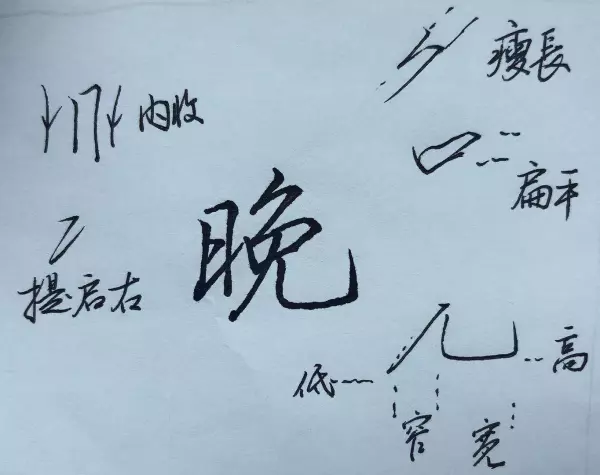 瘦長
内收
扁平
晚
提启右
低
高
窄 宽